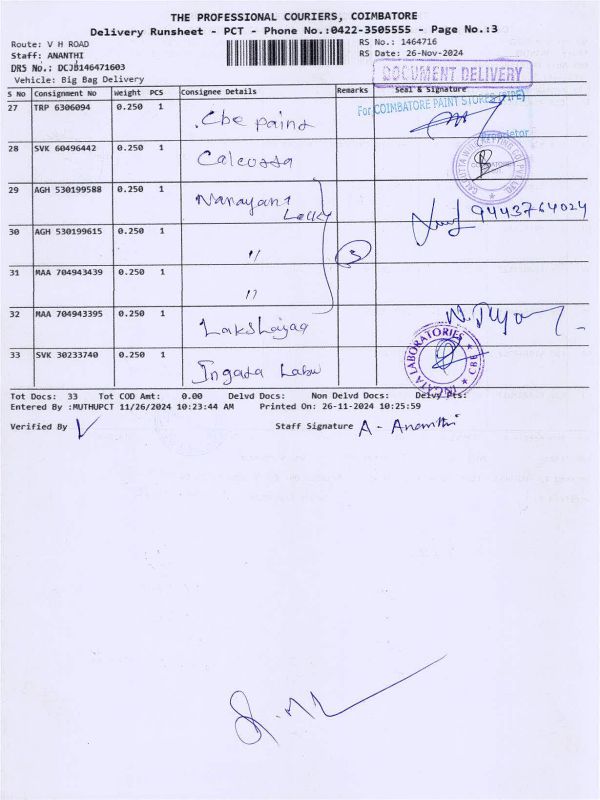 THE PROFESSIONAL COURIERS, COIMBATORE
Delivery Runsheet - PCT - Phone No.:0422-3505555 - Page No.:3
Route: V H ROAD RS No.: 1464716
Staff: ANANTHI RS Date: 26-Nov-2024
DRS No.: DCJB146471603
Vehicle: Big Bag Delivery
DOCUMENT DELIVERY
S No Consignment No Weight PCS Consignee Details Remarks Seal & Signature
For COIMBATORE PAINT STORES (PIPE)
27 TRP 6306094 0.250 1 Cbe paint
Proprietor
28 SVK 60496442 0.250 1
29 AGH 530199588 0.250 1 9443764024
30 AGH 530199615 0.250 1 " 3
31 MAA 704943439 0.250 1 "
32 MAA 704943395 0.250 1
33 SVK 30233740 0.250 1 Ingata
INGATA LABORATORIES ★ CBE ★
Tot Docs: 33 Tot COD Amt: 0.00 Delvd Docs: Non Delvd Docs: Delvy Pts:
Entered By :MUTHUPCT 11/26/2024 10:23:44 AM Printed On: 26-11-2024 10:25:59
Verified By Staff Signature A - Ananthi